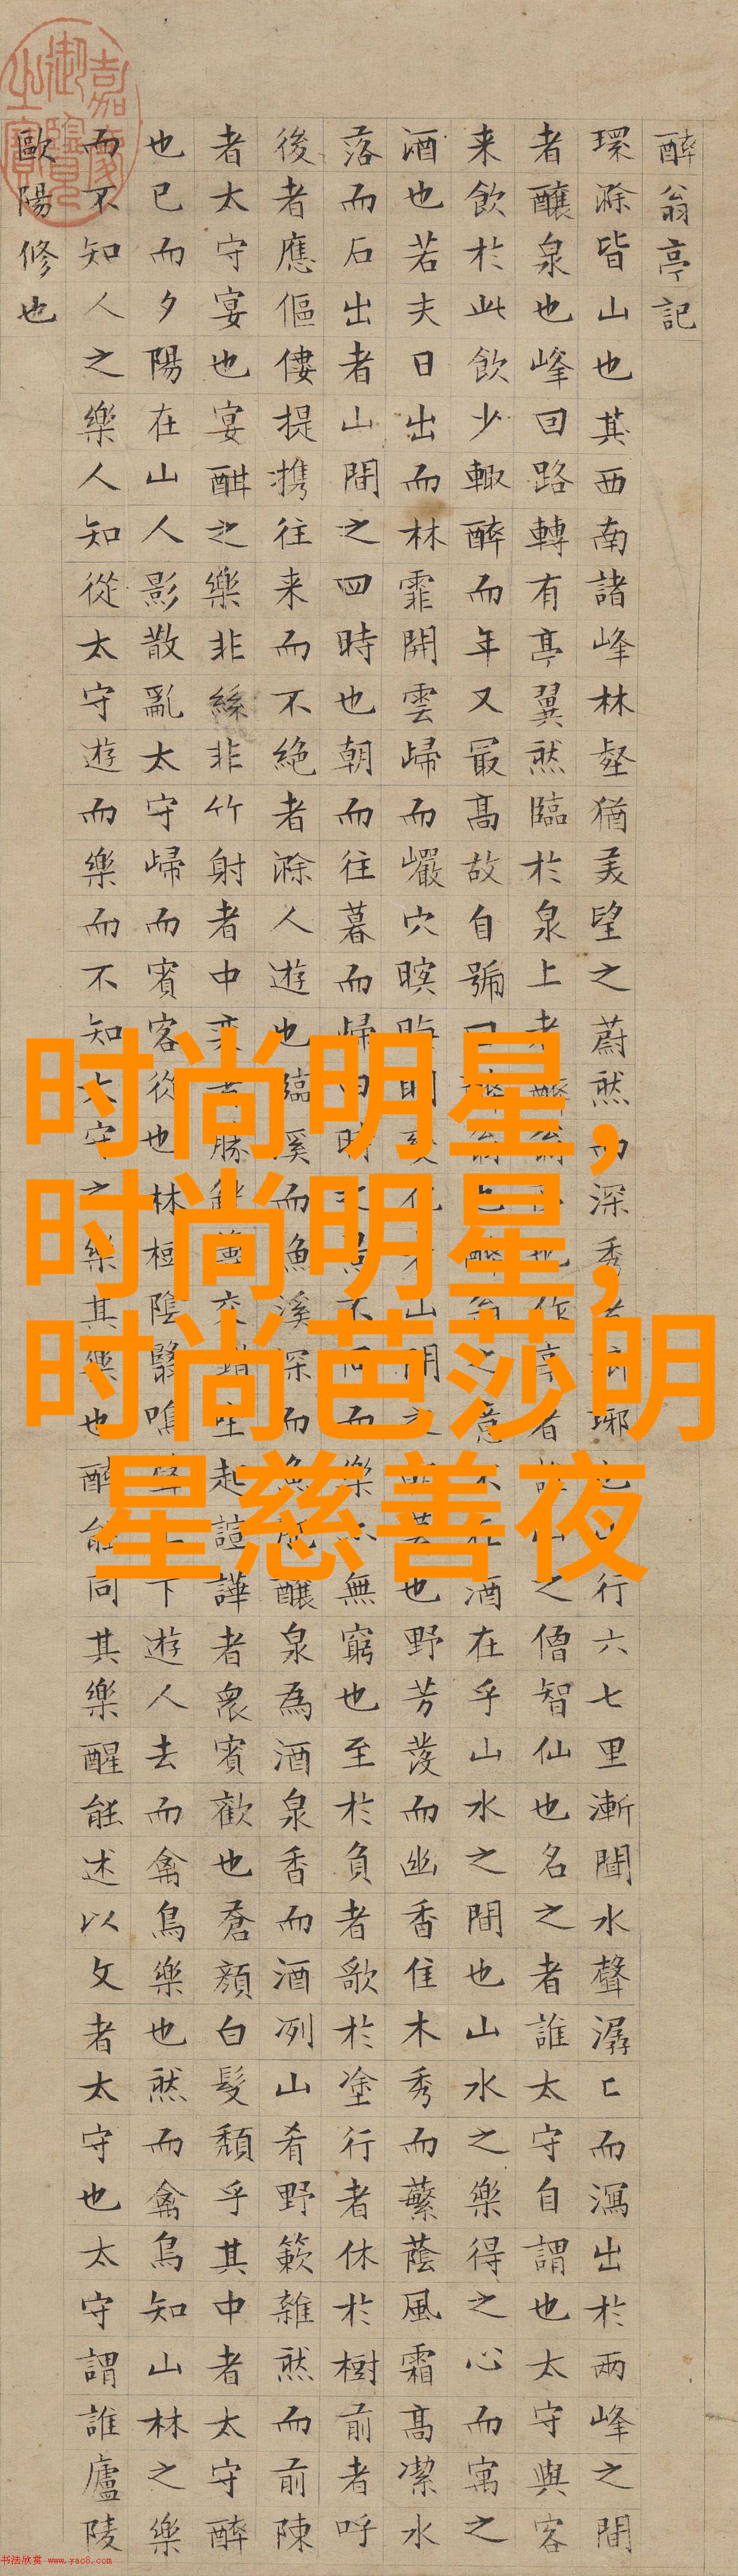 醉翁亭記
環滁皆山也其西南諸峰林壑猶美望之蔚然而深秀者瑯琊也山行六七里漸聞水聲潺〻而瀉出於兩峰之間
者釀泉也峰回路轉有亭翼然臨於泉上者醉翁亭也作亭者誰山之僧智仙也名之者誰太守自謂也太守與客
来飲於此飲少輙醉而年又最高故自號曰醉翁也醉翁之意不在酒在乎山水之間也山水之樂得之心而寓之
酒也若夫日出而林霏開雲歸而巖穴暝晦明變化者山間之朝暮也野芳發而幽香佳木秀而蘩蔭風霜高潔水
落而石出者山間之四時也朝而往暮而歸四時之景不同而樂亦無窮也至於負者歌於塗行者休於樹前者呼
後者應傴僂提攜往来而不絶者滁人遊也臨溪而魚溪深而魚肥釀泉為酒泉香而酒冽山肴野簌雜然而前陳
者太守宴也宴酣之樂非絲非竹射者中奕者勝觥籌交錯坐起諠譁者衆賓歡也蒼顏白髮頹乎其中者太守醉
也已而夕陽在山人影散亂太守歸而賓客從也林樹陰翳鳴聲上下遊人去而禽鳥樂也然而禽鳥知山林之樂
而不知人之樂人知從太守遊而樂而不知太守之樂其樂也醉能同其樂醒能述以文者太守也太守謂誰廬陵
歐陽修也
嘉慶御覽之寶
时尚明星,
时尚明星,
时尚芭莎明
星慈善夜
书法欣赏 www.yac8.com